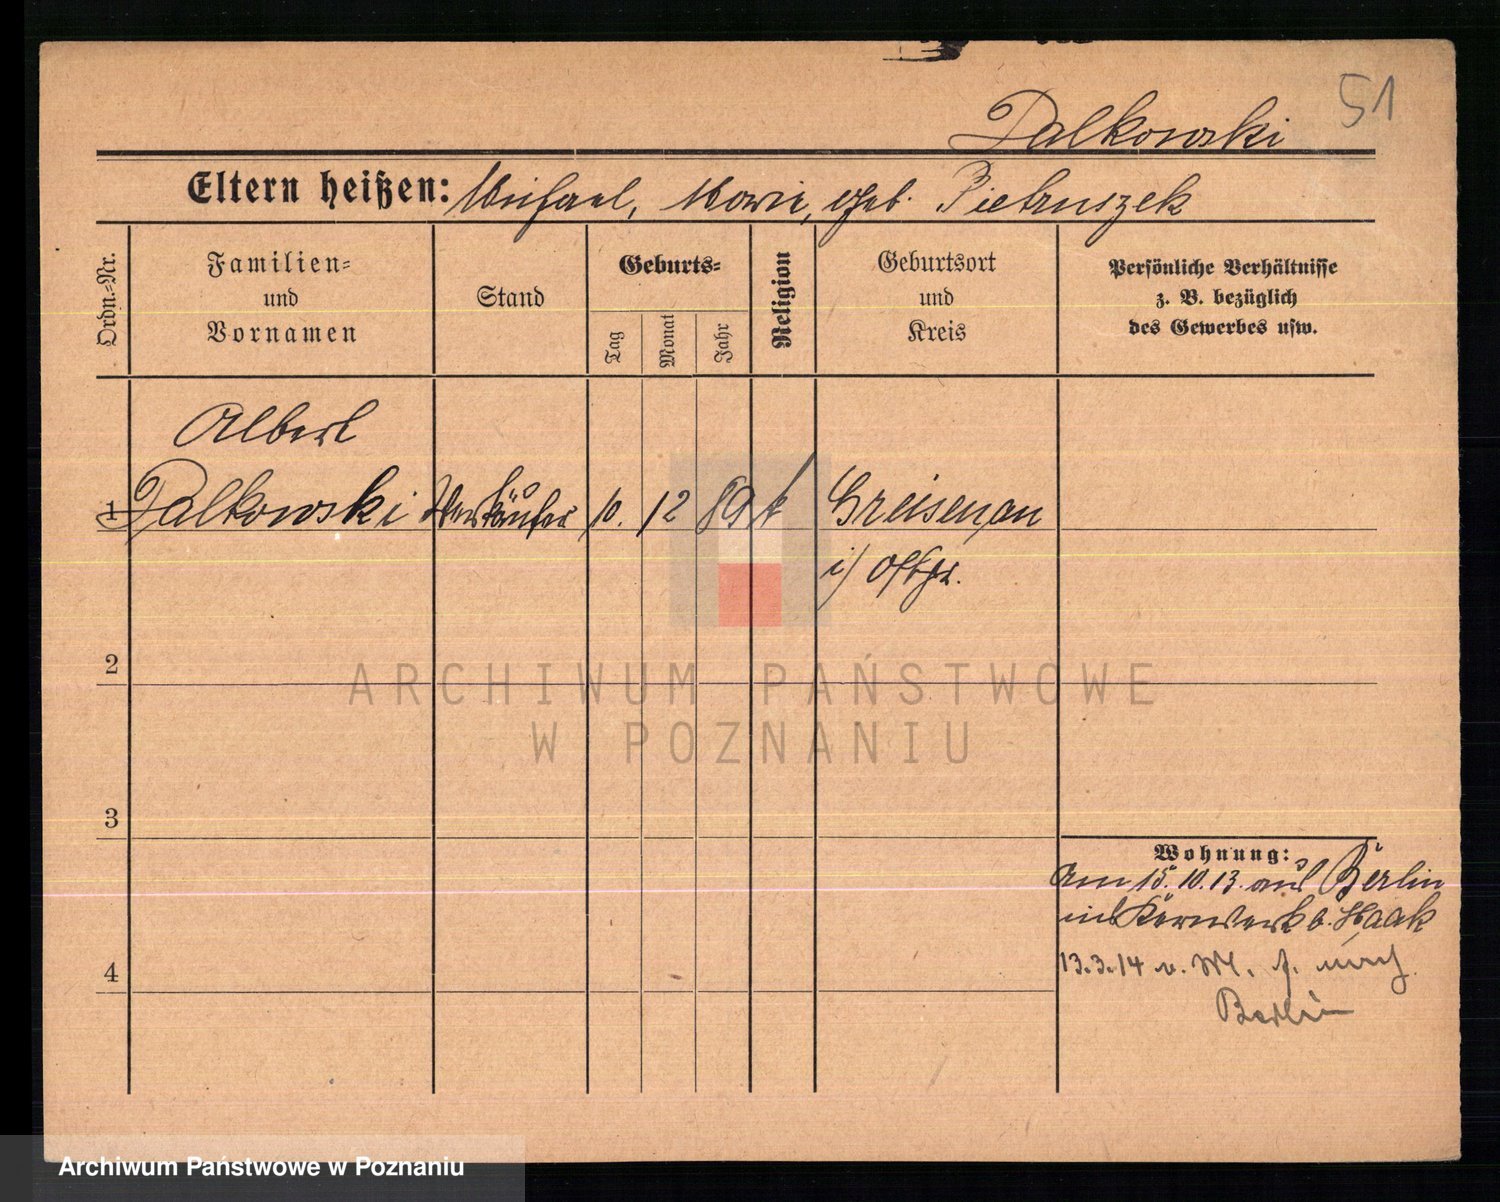 51
Palkowski
Eltern heißen: Michael, Marie, geb. Pietruszek
Ordn.-Nr.
Familien-
und
Vornamen
Stand
Geburts-
Tag
Monat
Jahr
Religion
Geburtsort
und
Kreis
Persönliche Verhältnisse
z. B. bezüglich
des Gewerbes usw.
Albert
1 Palkowski Verkäufer 10. 12 89 k Greisenau
i/ Ostpr.
2
ARCHIWUM PAŃSTWOWE
W POZNANIU
3
Wohnung:
Am 15. 10. 13. aus Berlin
b. Haak
4
13.3.14 v. M. f. nach
Berlin
Archiwum Państwowe w Poznaniu